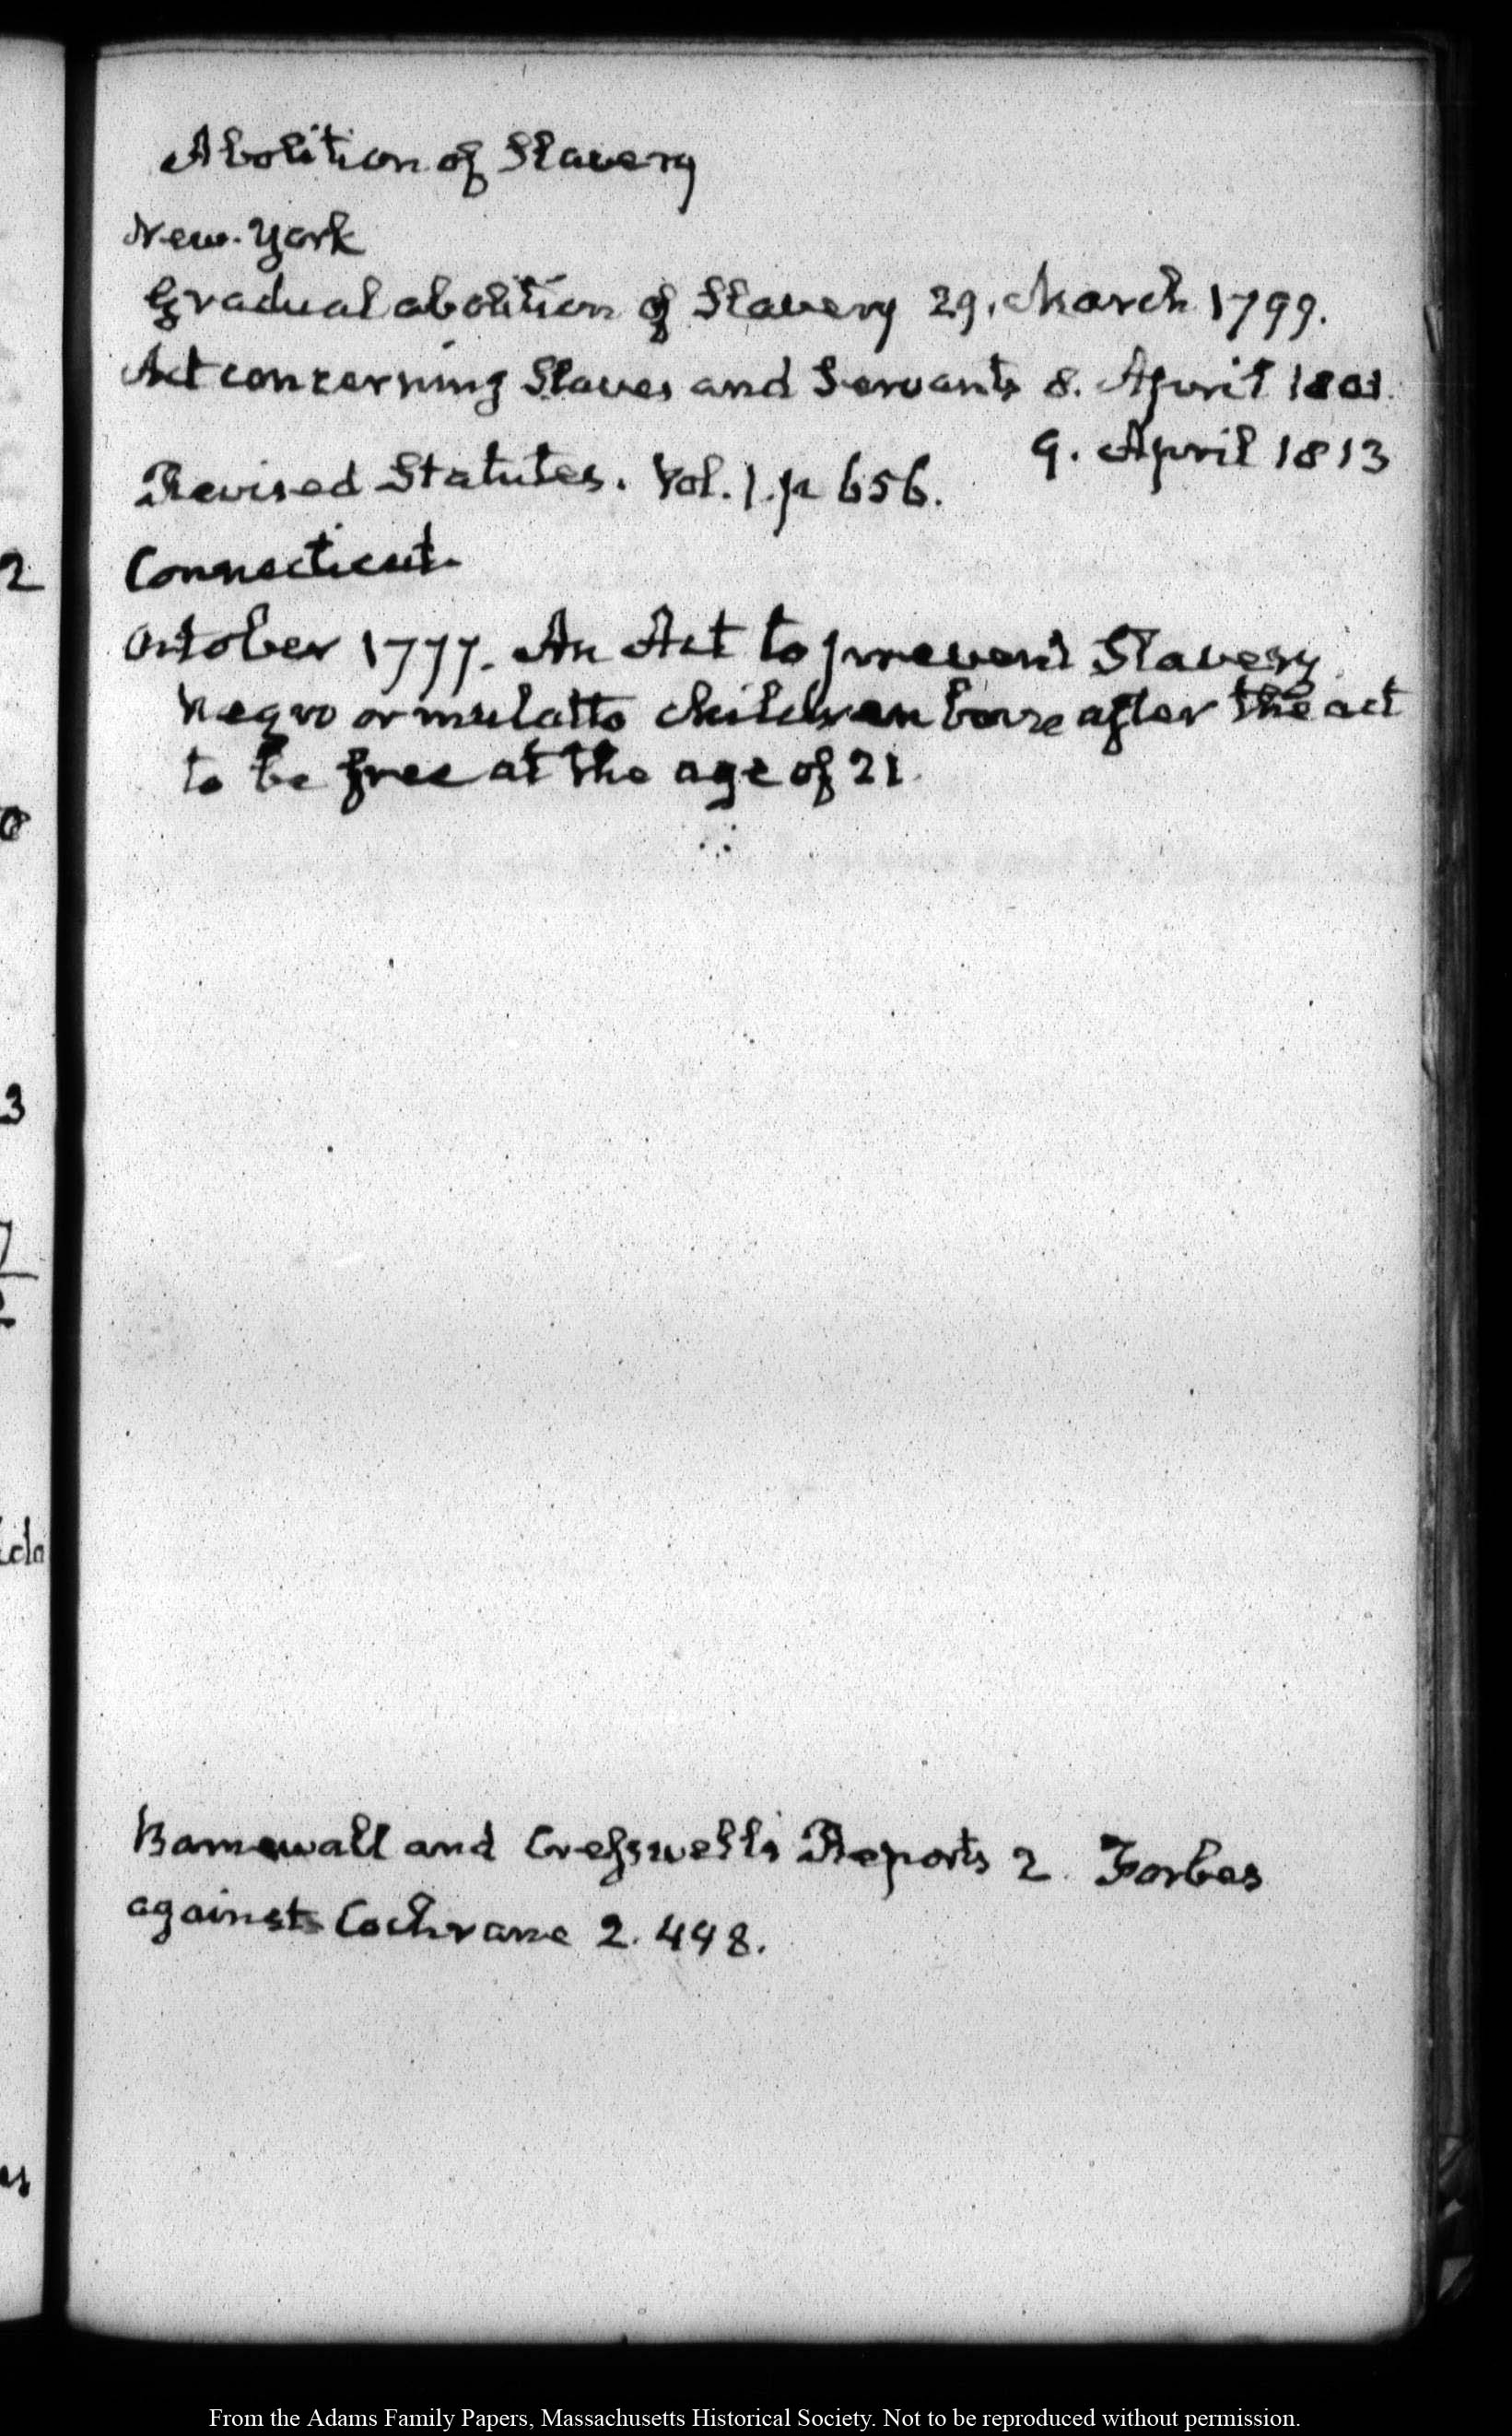 Abolition of Slavery
New-York
Gradual abolition of Slavery 29. March 1799.
Act concerning Slaves and Servants 8. April 1801.
9. April 1813
Revised Statutes. Vol. 1. p 656.
Connecticut.
October 1777. An Act to prevent Slavery
Negro or mulatto children born after the act
to be free at the age of 21.
Barnewall and Cresswell's Reports 2. Forbes
against Cochrane 2. 448.
2
3
es
From the Adams Family Papers, Massachusetts Historical Society. Not to be reproduced without permission.